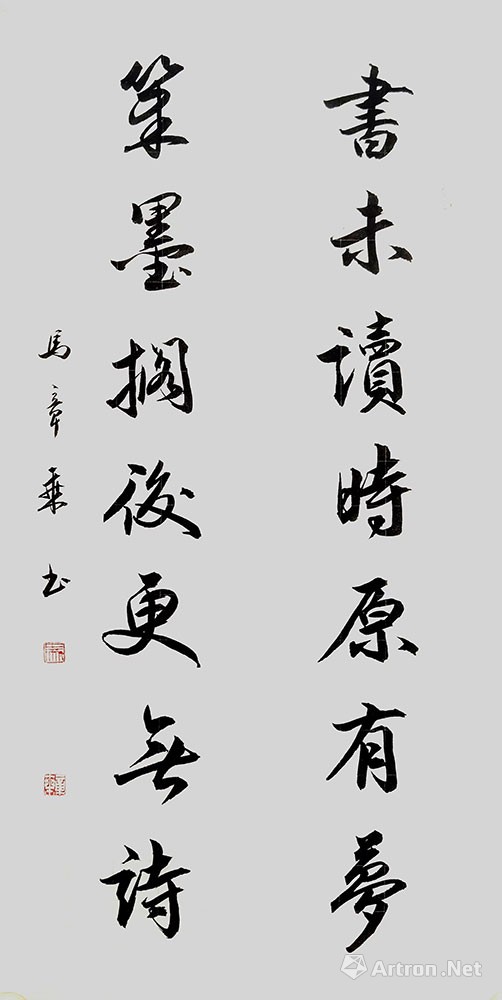 書未讀時原有夢
筆墨擱後更無詩
馬章乘书
Artron.Net